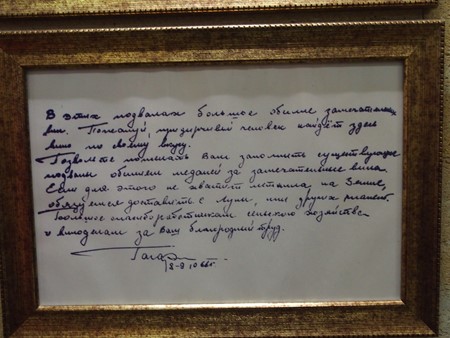 В этих подвалах большое обилие замечательных
вин. Пожалуй, придирчивый человек найдёт здесь
вино по своему вкусу.
Позвольте пожелать Вам заполнить существующие
подвалы обилием медалей за замечательные вина.
Если для этого не хватит металла на Земле,
обязуемся доставить с Луны, или других планет.
Большое спасибо работникам сельского хозяйства
и виноделам за Ваш благородный труд.
Гагар
8-9.10.66г.